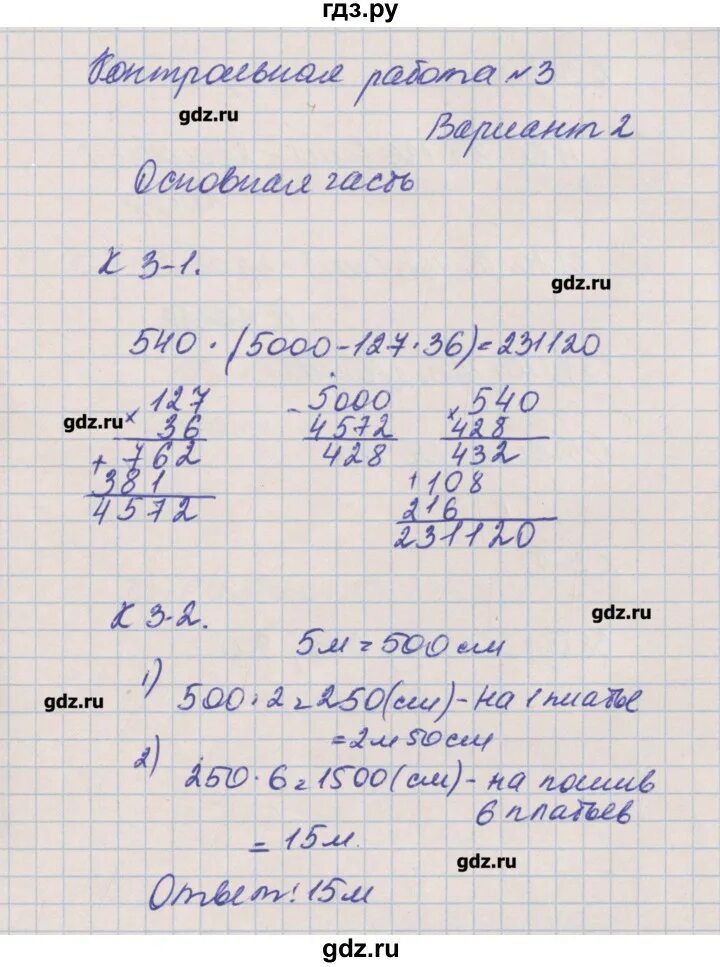 гдз.ру
Контрольная работа №3
gdz.ru
Вариант 2
Основная часть
К 3-1.
gdz.ru
540 · (5000-127·36)=231120
127
× 36
+ 762
381
4572
- 5000
4572
428
540
× 428
432
+ 108
216
231120
gdz.ru
К 3-2.
gdz.ru
5м = 500 см
1) 500 : 2 = 250 (см) - на 1 платье
gdz.ru
= 2м 50 см
2) 250 · 6 = 1500 (см) - на пошив
6 платьев
= 15м.
gdz.ru
Ответ: 15м
gdz.ru